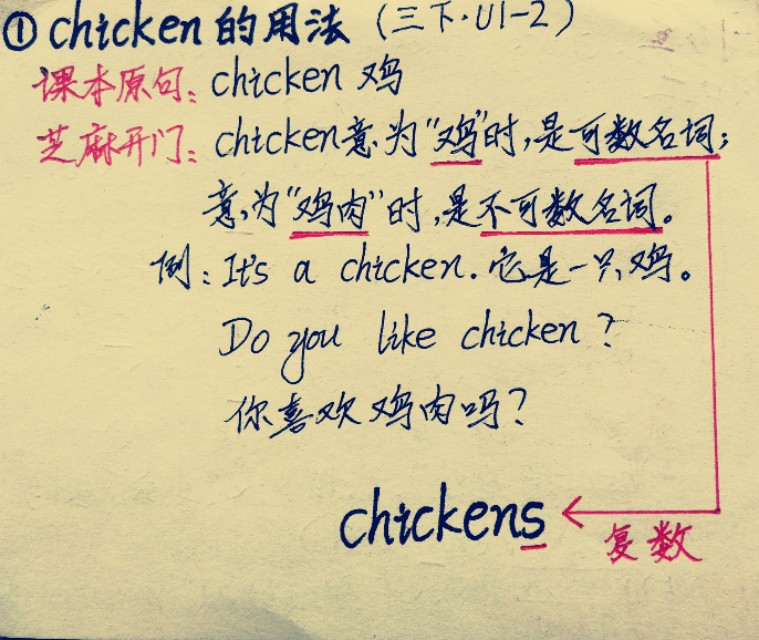 ① chicken 的用法 (三下·U1-2)
课本原句: chicken 鸡
芝麻开门: chicken意为“鸡”时,是可数名词;
意为“鸡肉”时,是不可数名词。
例: It's a chicken. 它是一只鸡。
Do you like chicken?
你喜欢鸡肉吗?
chickens
复数